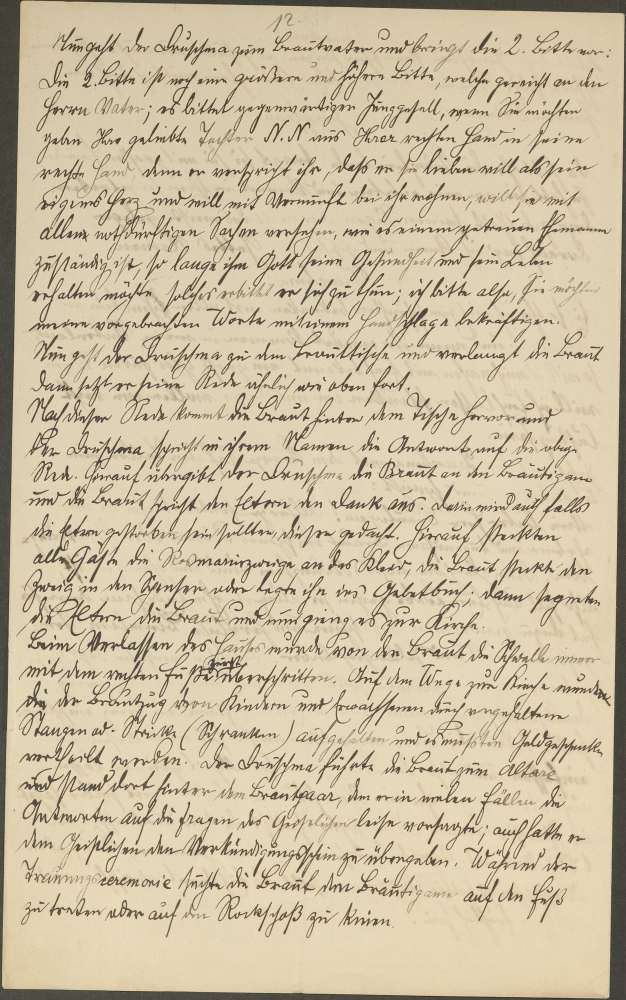 12.
Nun geht der Druschma zum Brautvater und bringt die 2. Bitte vor:
Die 2. Bitte ist noch eine größere und höhere Bitte, welche gereicht an den
Herrn Vater; es bittet gegenwärtiger Junggesell, wenn Sie möchten
geben Ihre geliebte Tochter N. N aus Ihrer rechten Hand in seine
rechte Hand denn er verspricht ihr, dass er sie lieben will als sein
eigenes Herz und will mit Vernunft bei ihr wohnen, will sie mit
allen nothdürftigen Sachen versehen, wie es einem getreuen Ehemann
zuständig ist, so lange ihm Gott seine Gesundheit und sein Leben
erhalten möchte, solches erbittet er sich zu thun; ich bitte also, Sie möchten
meine vorgebrachten Worte mit einem Handschlage bekräftigen.
Nun geht der Druschma zu dem Brauttische und verlangt die Braut
dann setzt er seine Rede ähnlich wie oben fort.
Nach dieser Rede kommt die Braut hinter dem Tische hervor und
der Druschma spricht in ihrem Namen die Antwort auf die obige
Rede. Hierauf übergibt der Druschma die Braut an den Bräutigam
und die Braut spricht den Eltern den Dank aus. Darin wird auch falls
die Eltern gestorben sein sollten, dieser gedacht. Hierauf steckten
alle Gäste die Rosmarinzweige an das Kleid, die Braut steckte den
Zweig in den Spenser oder legte ihn ins Gebetbuch; dann segneten
die Eltern die Braut und nun gieng es zur Kirche.
Beim Verlassen des Hauses wurde von der Braut die Schwelle immer
mit dem rechten Fuße zuerst überschritten. Auf dem Wege zur Kirche wurde
der Brautzug von Kindern und Erwachsenen durch vorgehaltene
Stangen od. Stricke (Schranken) aufgehalten und es mußten Geldgeschenke
vertheilt werden. Der Druschma führte die Braut zum Altare
und stand dort hinter dem Brautpaar, dem er in vielen Fällen die
Antworten auf die Fragen des Geistlichen leise vorsagte; auch hatte er
dem Geistlichen den Verkündigungsschein zu übergeben. Während der
Trauungsceremonie suchte die Braut dem Bräutigam auf den Fuß
zu treten oder auf den Rockschoß zu knien.